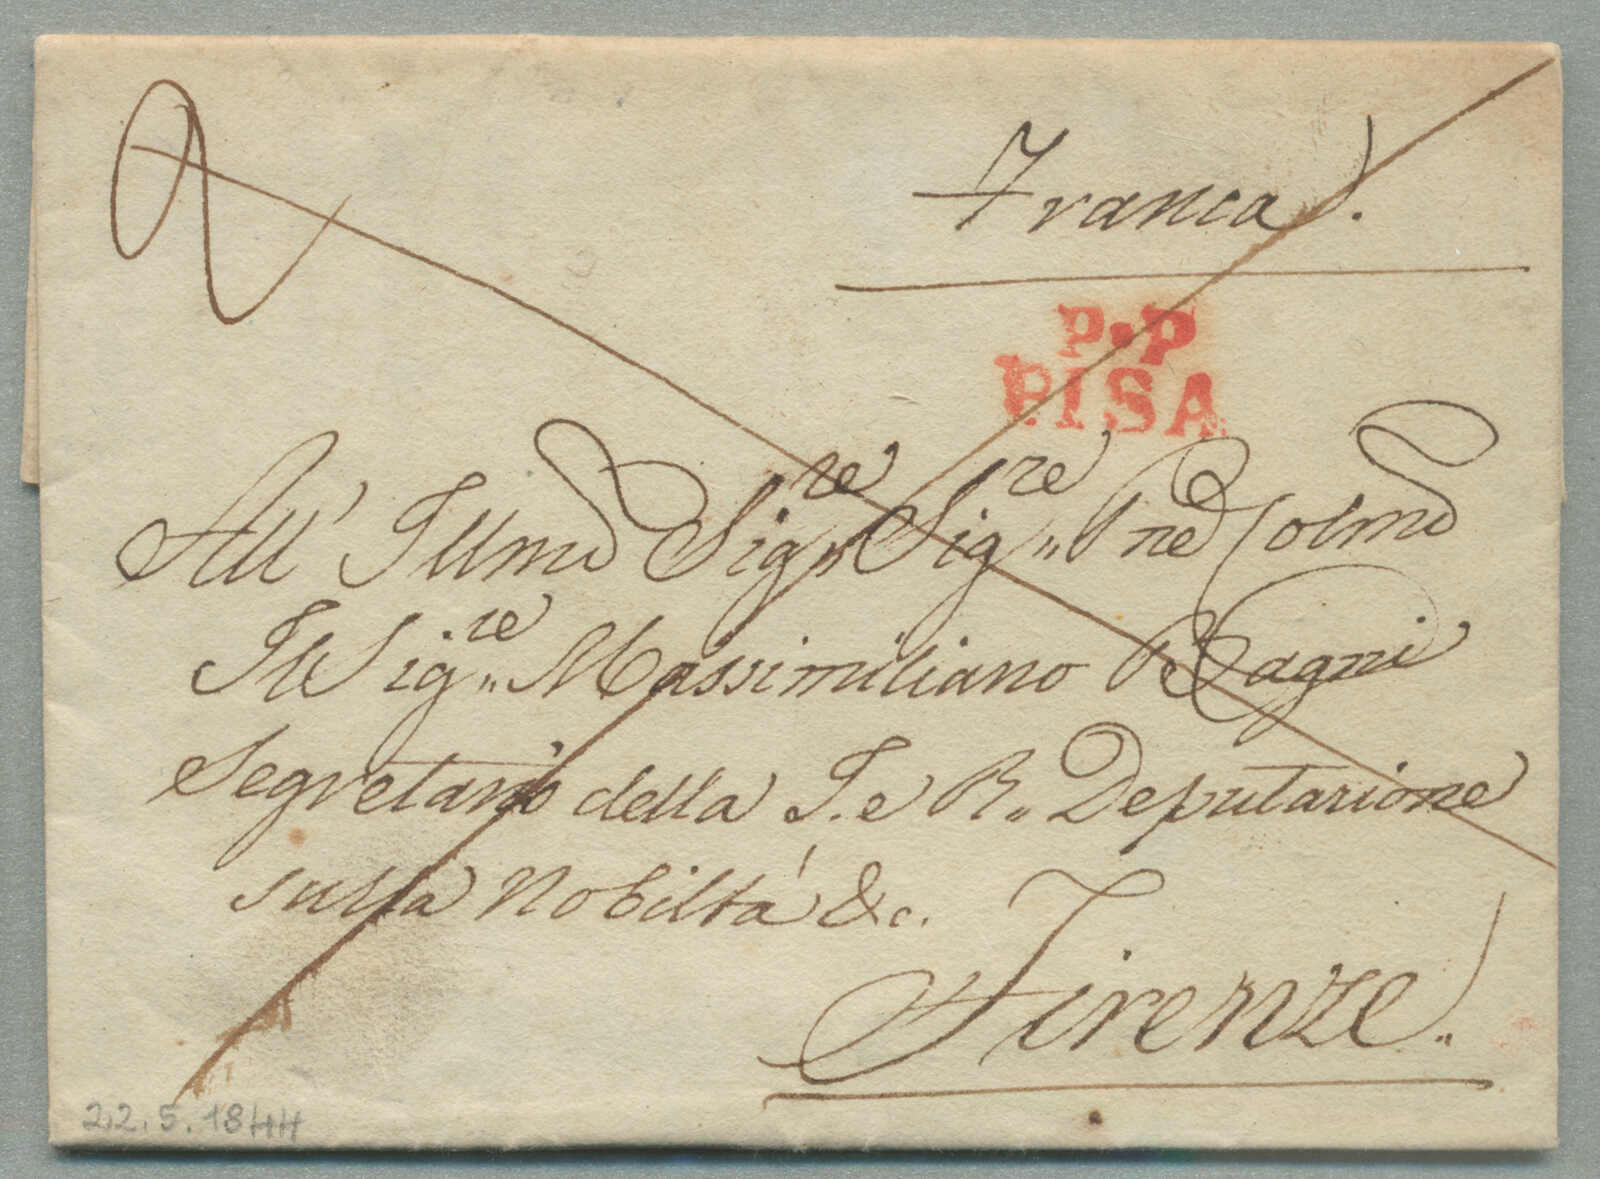 Franca.
P.P
PISA
All' Illmo Sig.re Sig.re Pne Colmo
Il Sig.re Massimiliano Bagni
Segretario della I. e R. Deputazione
sulla Nobiltà &c.
Firenze
22.5.1844